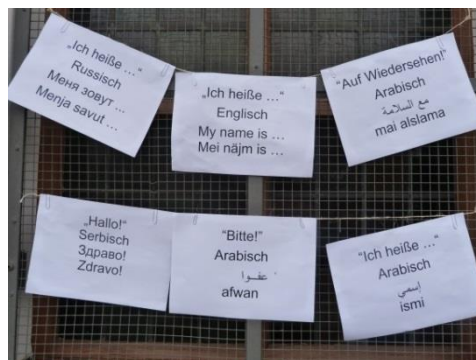 „Ich heiße ...“
Russisch
Меня зовут ...
Menja savut ...
„Ich heiße ...“
Englisch
My name is ...
Mei näjm is ...
"Auf Wiedersehen!"
Arabisch
مع السلامة
mai alslama
„Hallo!“
Serbisch
Здраво!
Zdravo!
"Bitte!"
Arabisch
عفوا
afwan
"Ich heiße ..."
Arabisch
إسمي
ismi